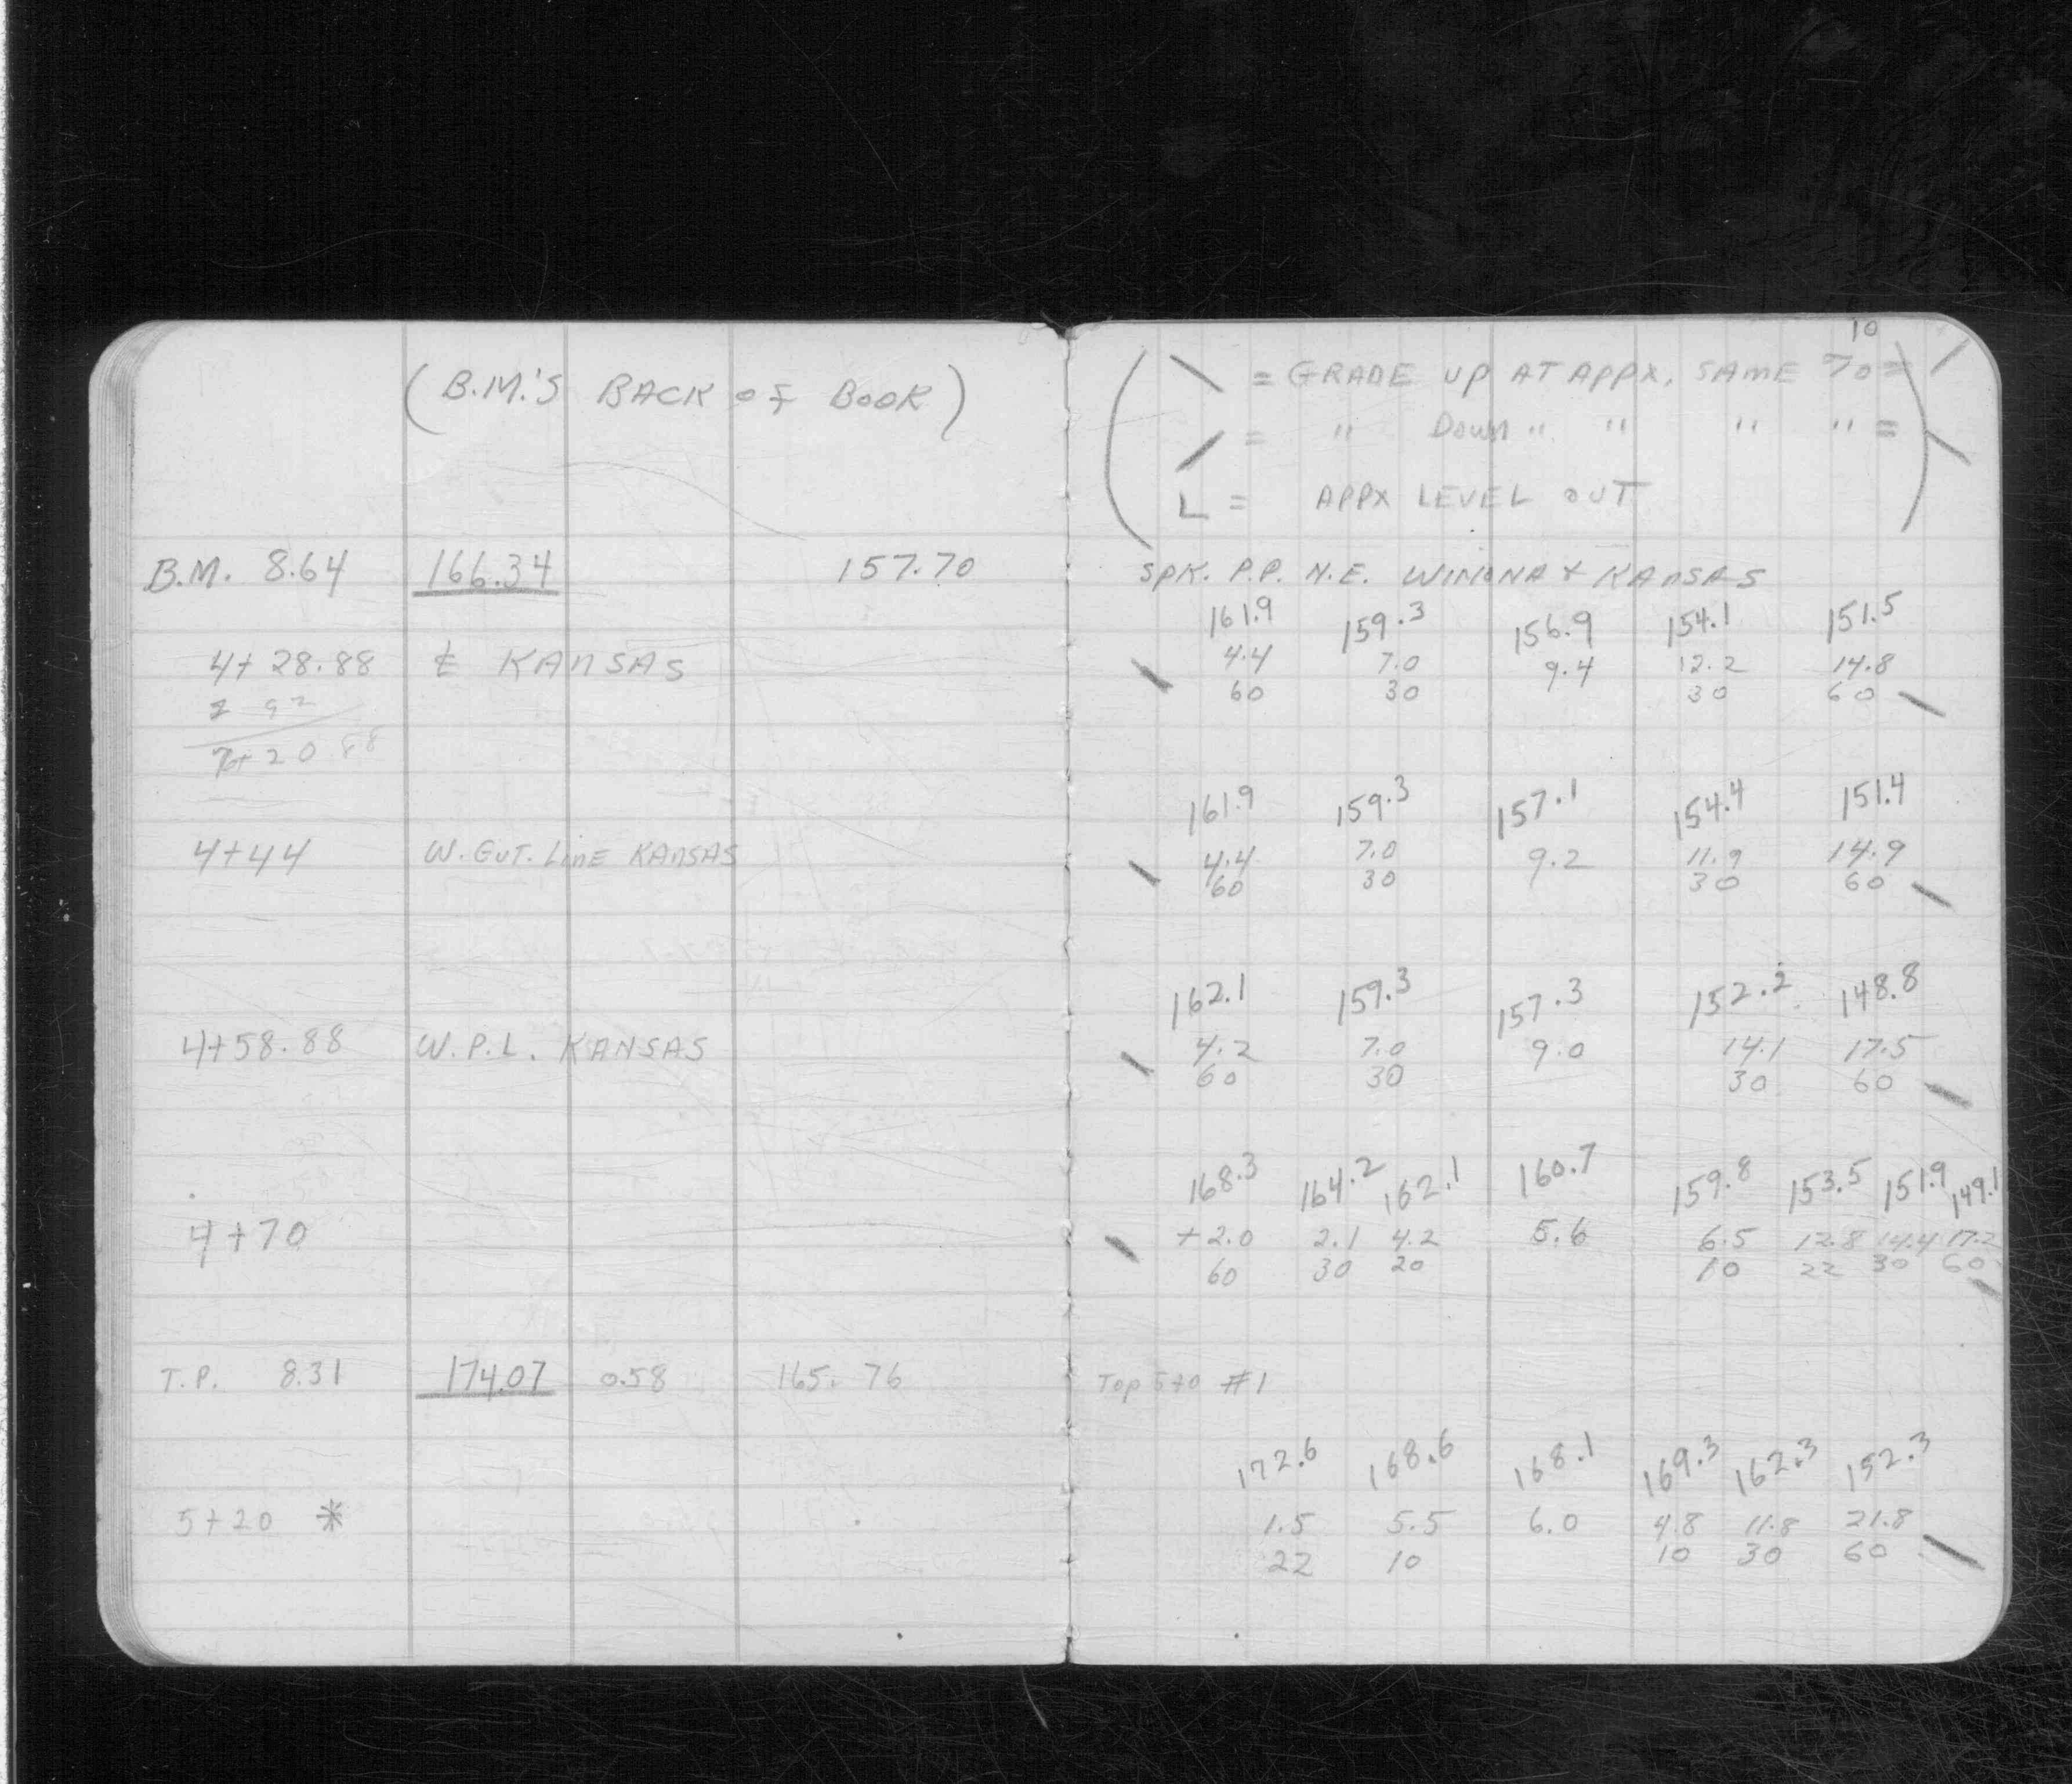 (B.M.'S BACK OF BOOK)
B.M. 8.64 166.34 157.70
4+28.88 ℄ KANSAS
92
7+20.88
4+44 W. GUT. LINE KANSAS
4+58.88 W.P.L. KANSAS
4+70
T.P. 8.31 174.07 0.58 165.76
5+20 *
10
\ = GRADE UP AT APPX. SAME % = /
/ = " DOWN " " " " = \
L = APPX LEVEL OUT
SPK. P.P. N.E. WINONA & KANSAS
161.9 159.3 156.9 154.1 151.5
\ 4.4 7.0 9.4 12.2 14.8
60 30 30 60 \
161.9 159.3 157.1 154.4 151.4
\ 4.4 7.0 9.2 11.9 14.9
60 30 30 60 \
162.1 159.3 157.3 152.2 148.8
\ 4.2 7.0 9.0 14.1 17.5
60 30 30 60 \
168.3 164.2 162.1 160.7 159.8 153.5 151.9 149.1
\ +2.0 2.1 4.2 5.6 6.5 12.8 14.4 17.2
60 30 20 10 22 30 60 \
TOP STO #1
172.6 168.6 168.1 169.3 162.3 152.3
1.5 5.5 6.0 4.8 11.8 21.8
22 10 10 30 60 \